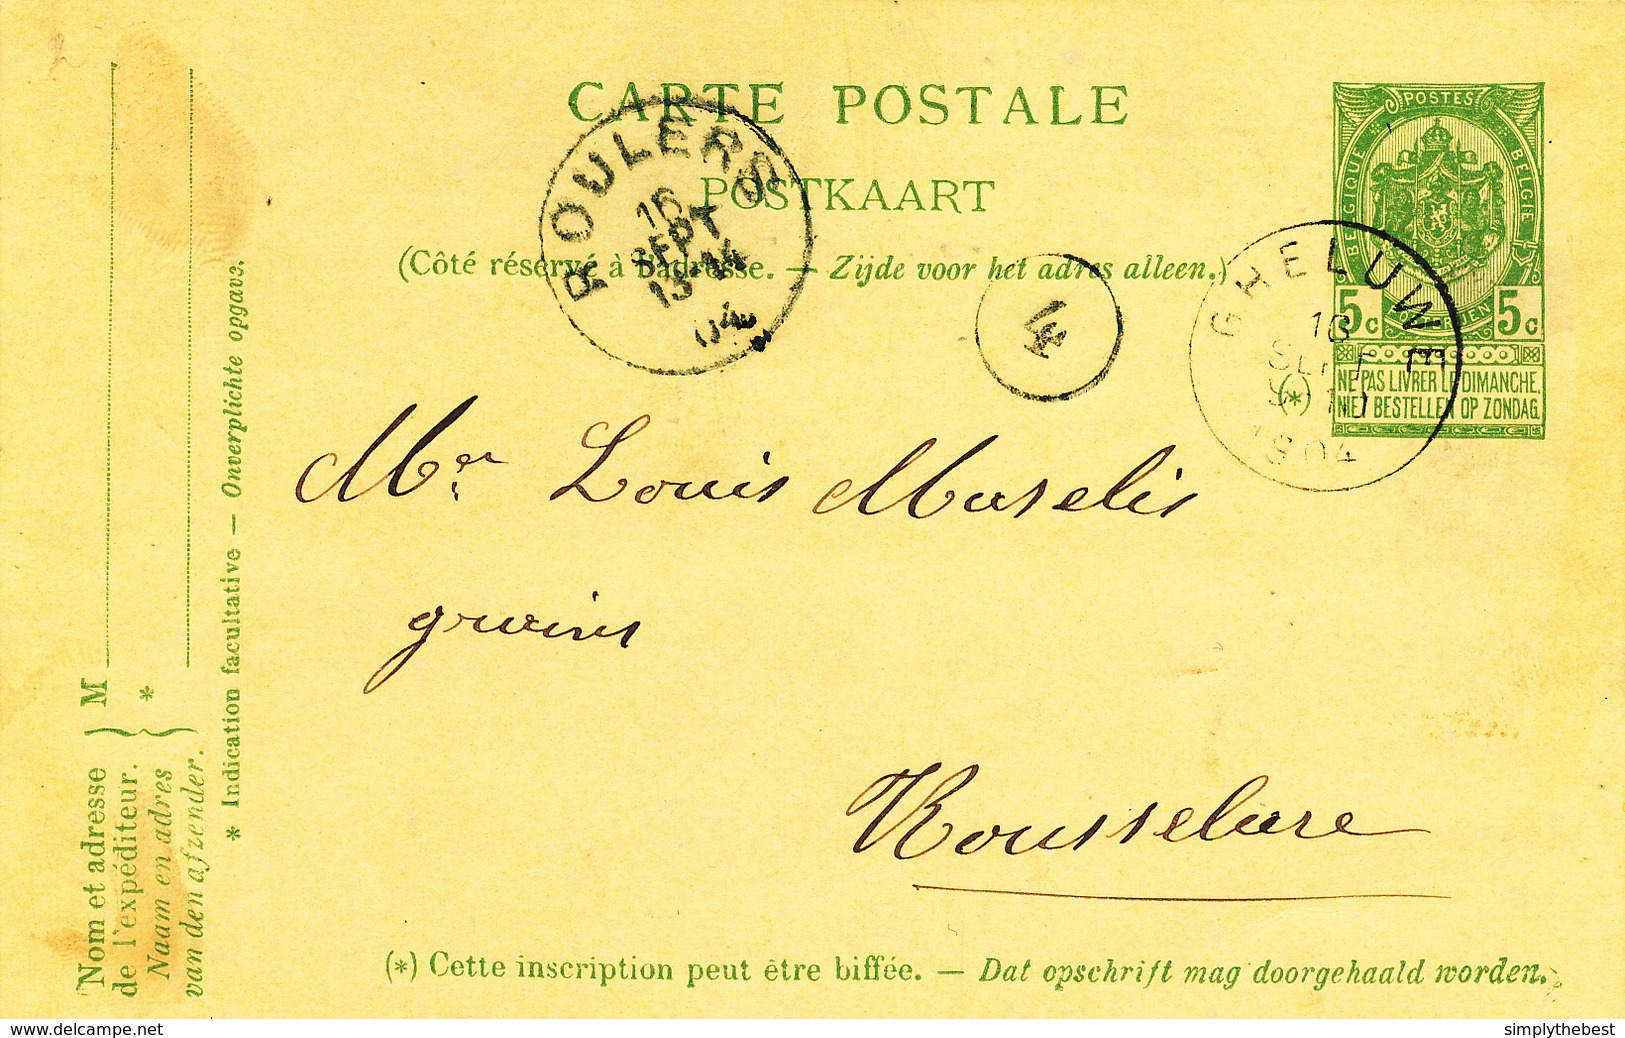 CARTE POSTALE
POSTKAART
(Côté réservé à l'adresse. — Zijde voor het adres alleen.)
ROULERS
16
SEPT
13-14
04
4
POSTES
BELGIQUE
BELGIE
5c
5c
NE PAS LIVRER LE DIMANCHE.
NIET BESTELLEN OP ZONDAG.
(*)
GHELUWE
16
SEPT
1904
Mr Louis Maselis
grains
Rousselare
(*) Cette inscription peut être biffée. — Dat opschrift mag doorgehaald worden.
* Indication facultative — Onverplichte opgave.
Nom et adresse
de l'expéditeur.
Naam en adres
van den afzender.
M
*
delcampe.net
simplythebest